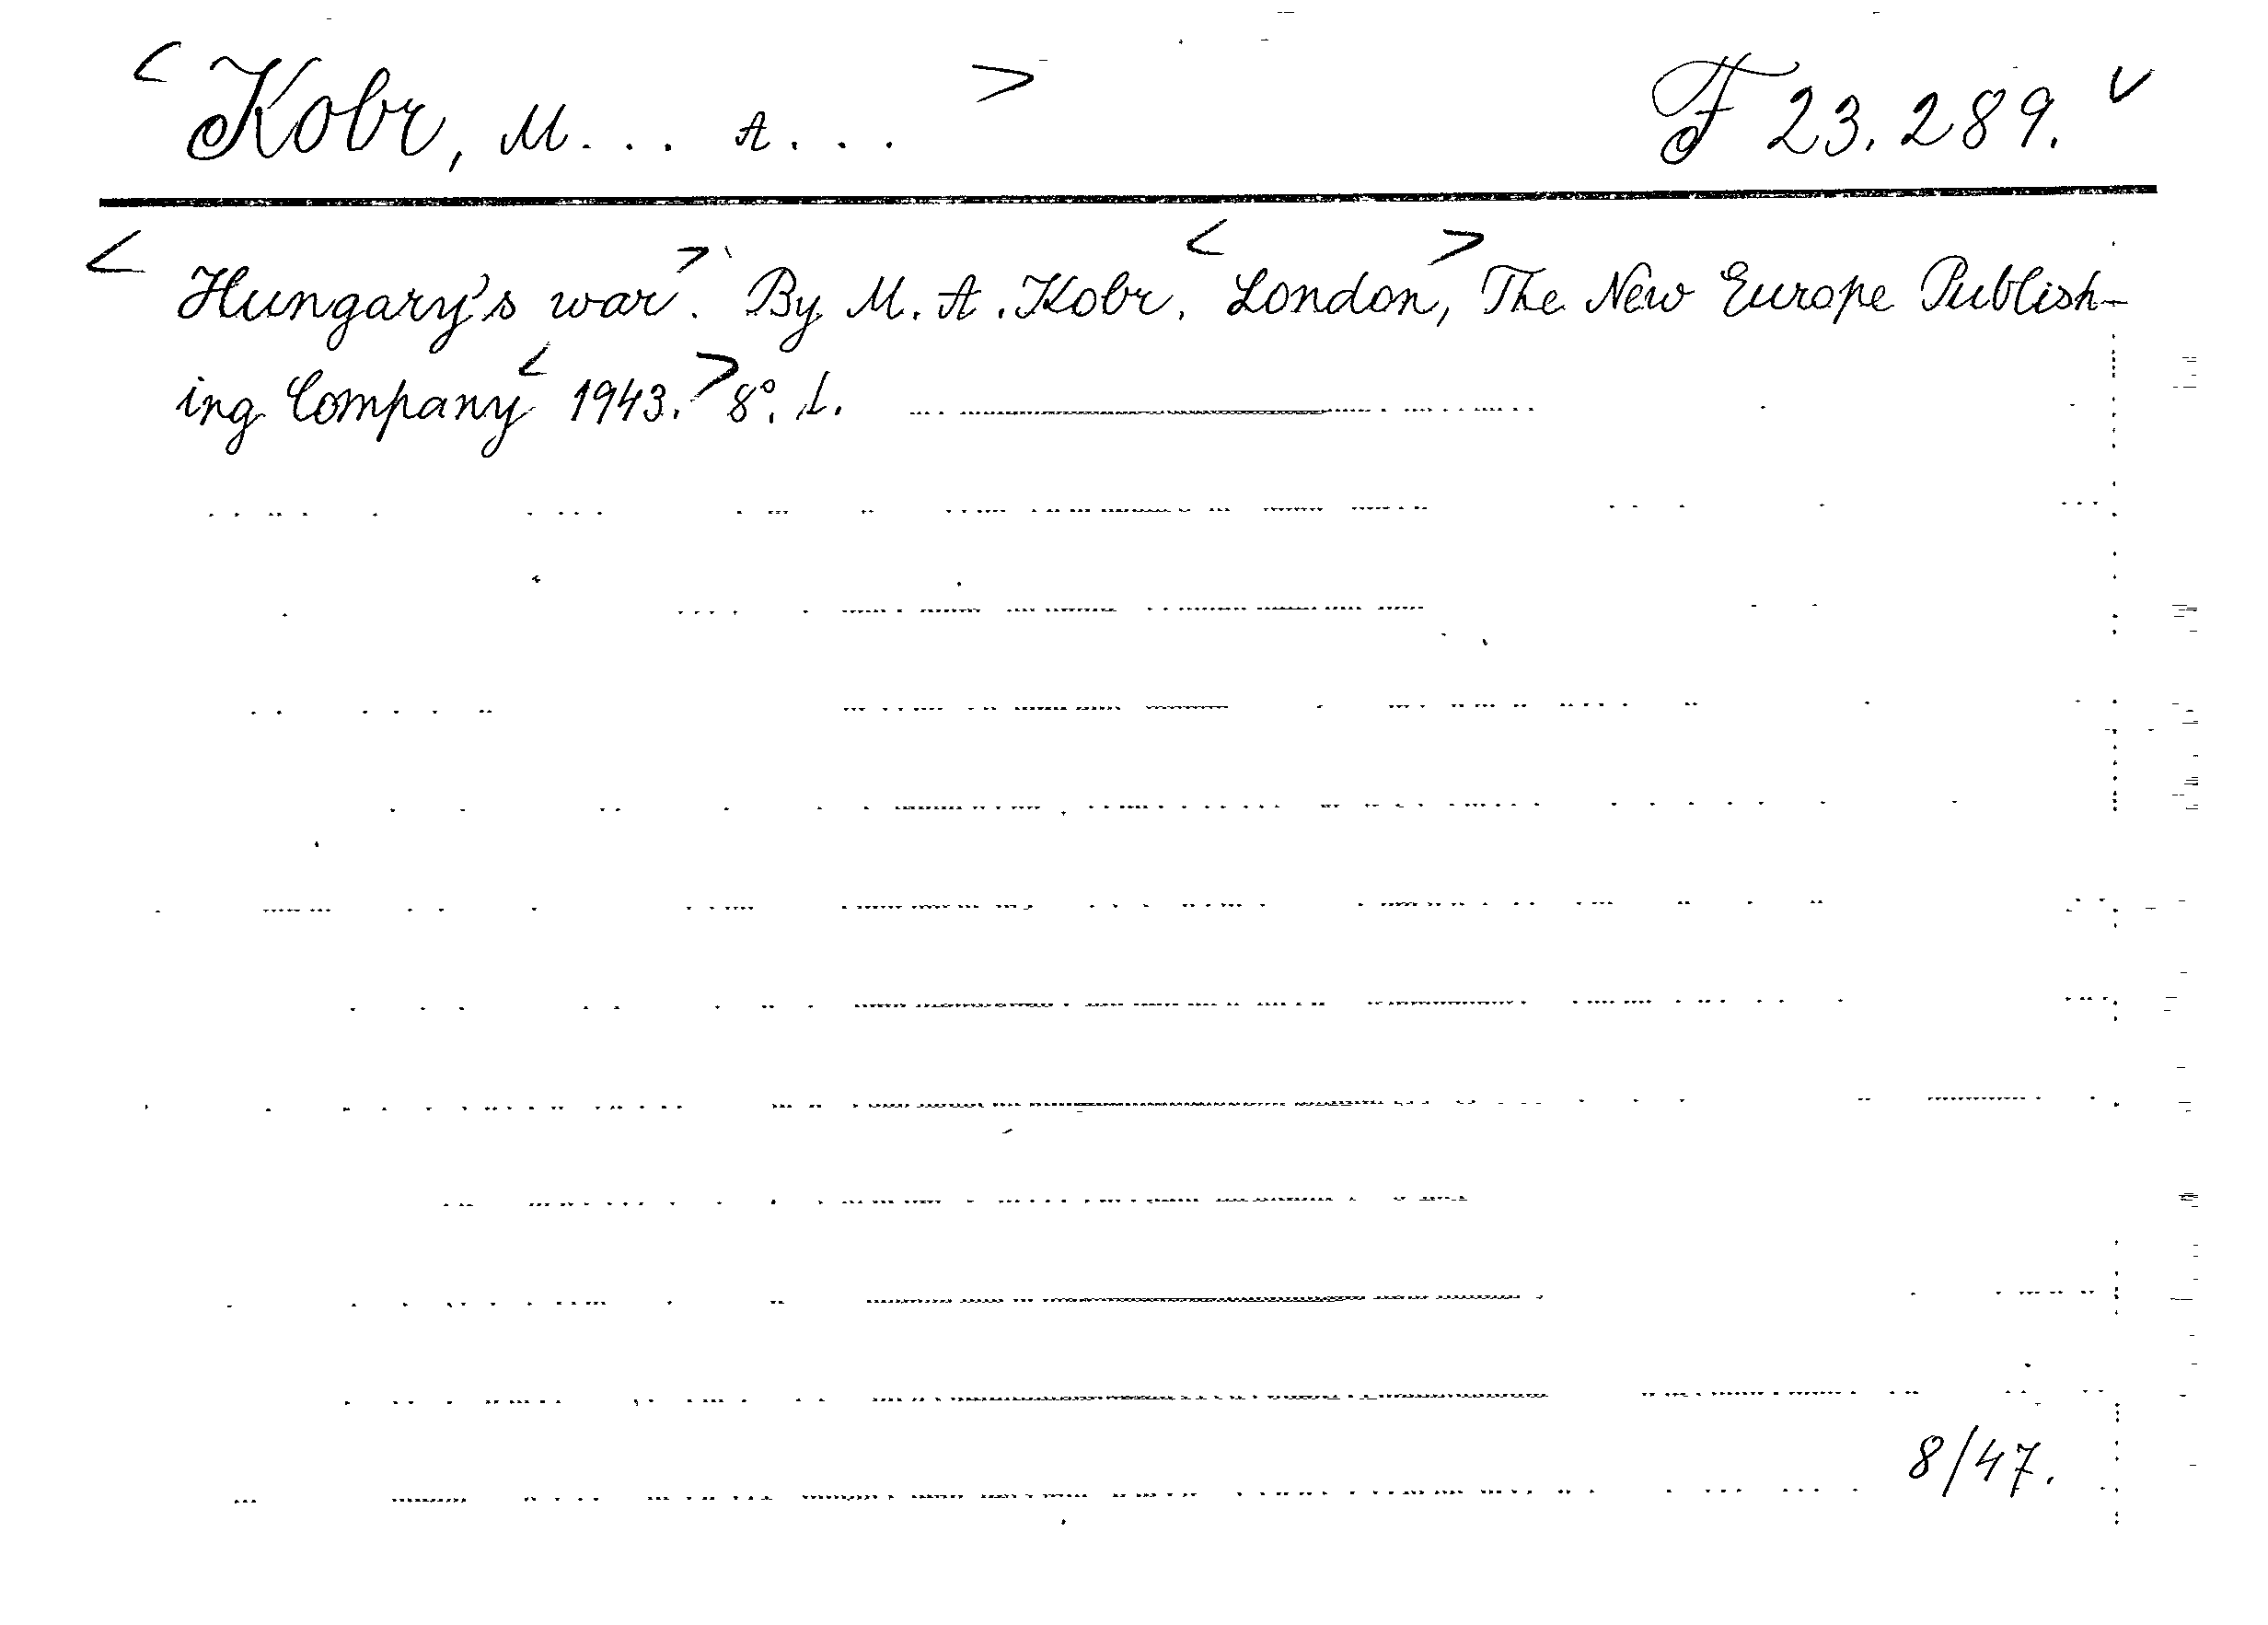 < Kobr, M... A... > F 23.289. v
< Hungary's war >. By M. A. Kobr. < London, > The New Europe Publish-
ing Company < 1943. > 8°. 1.
8/47.